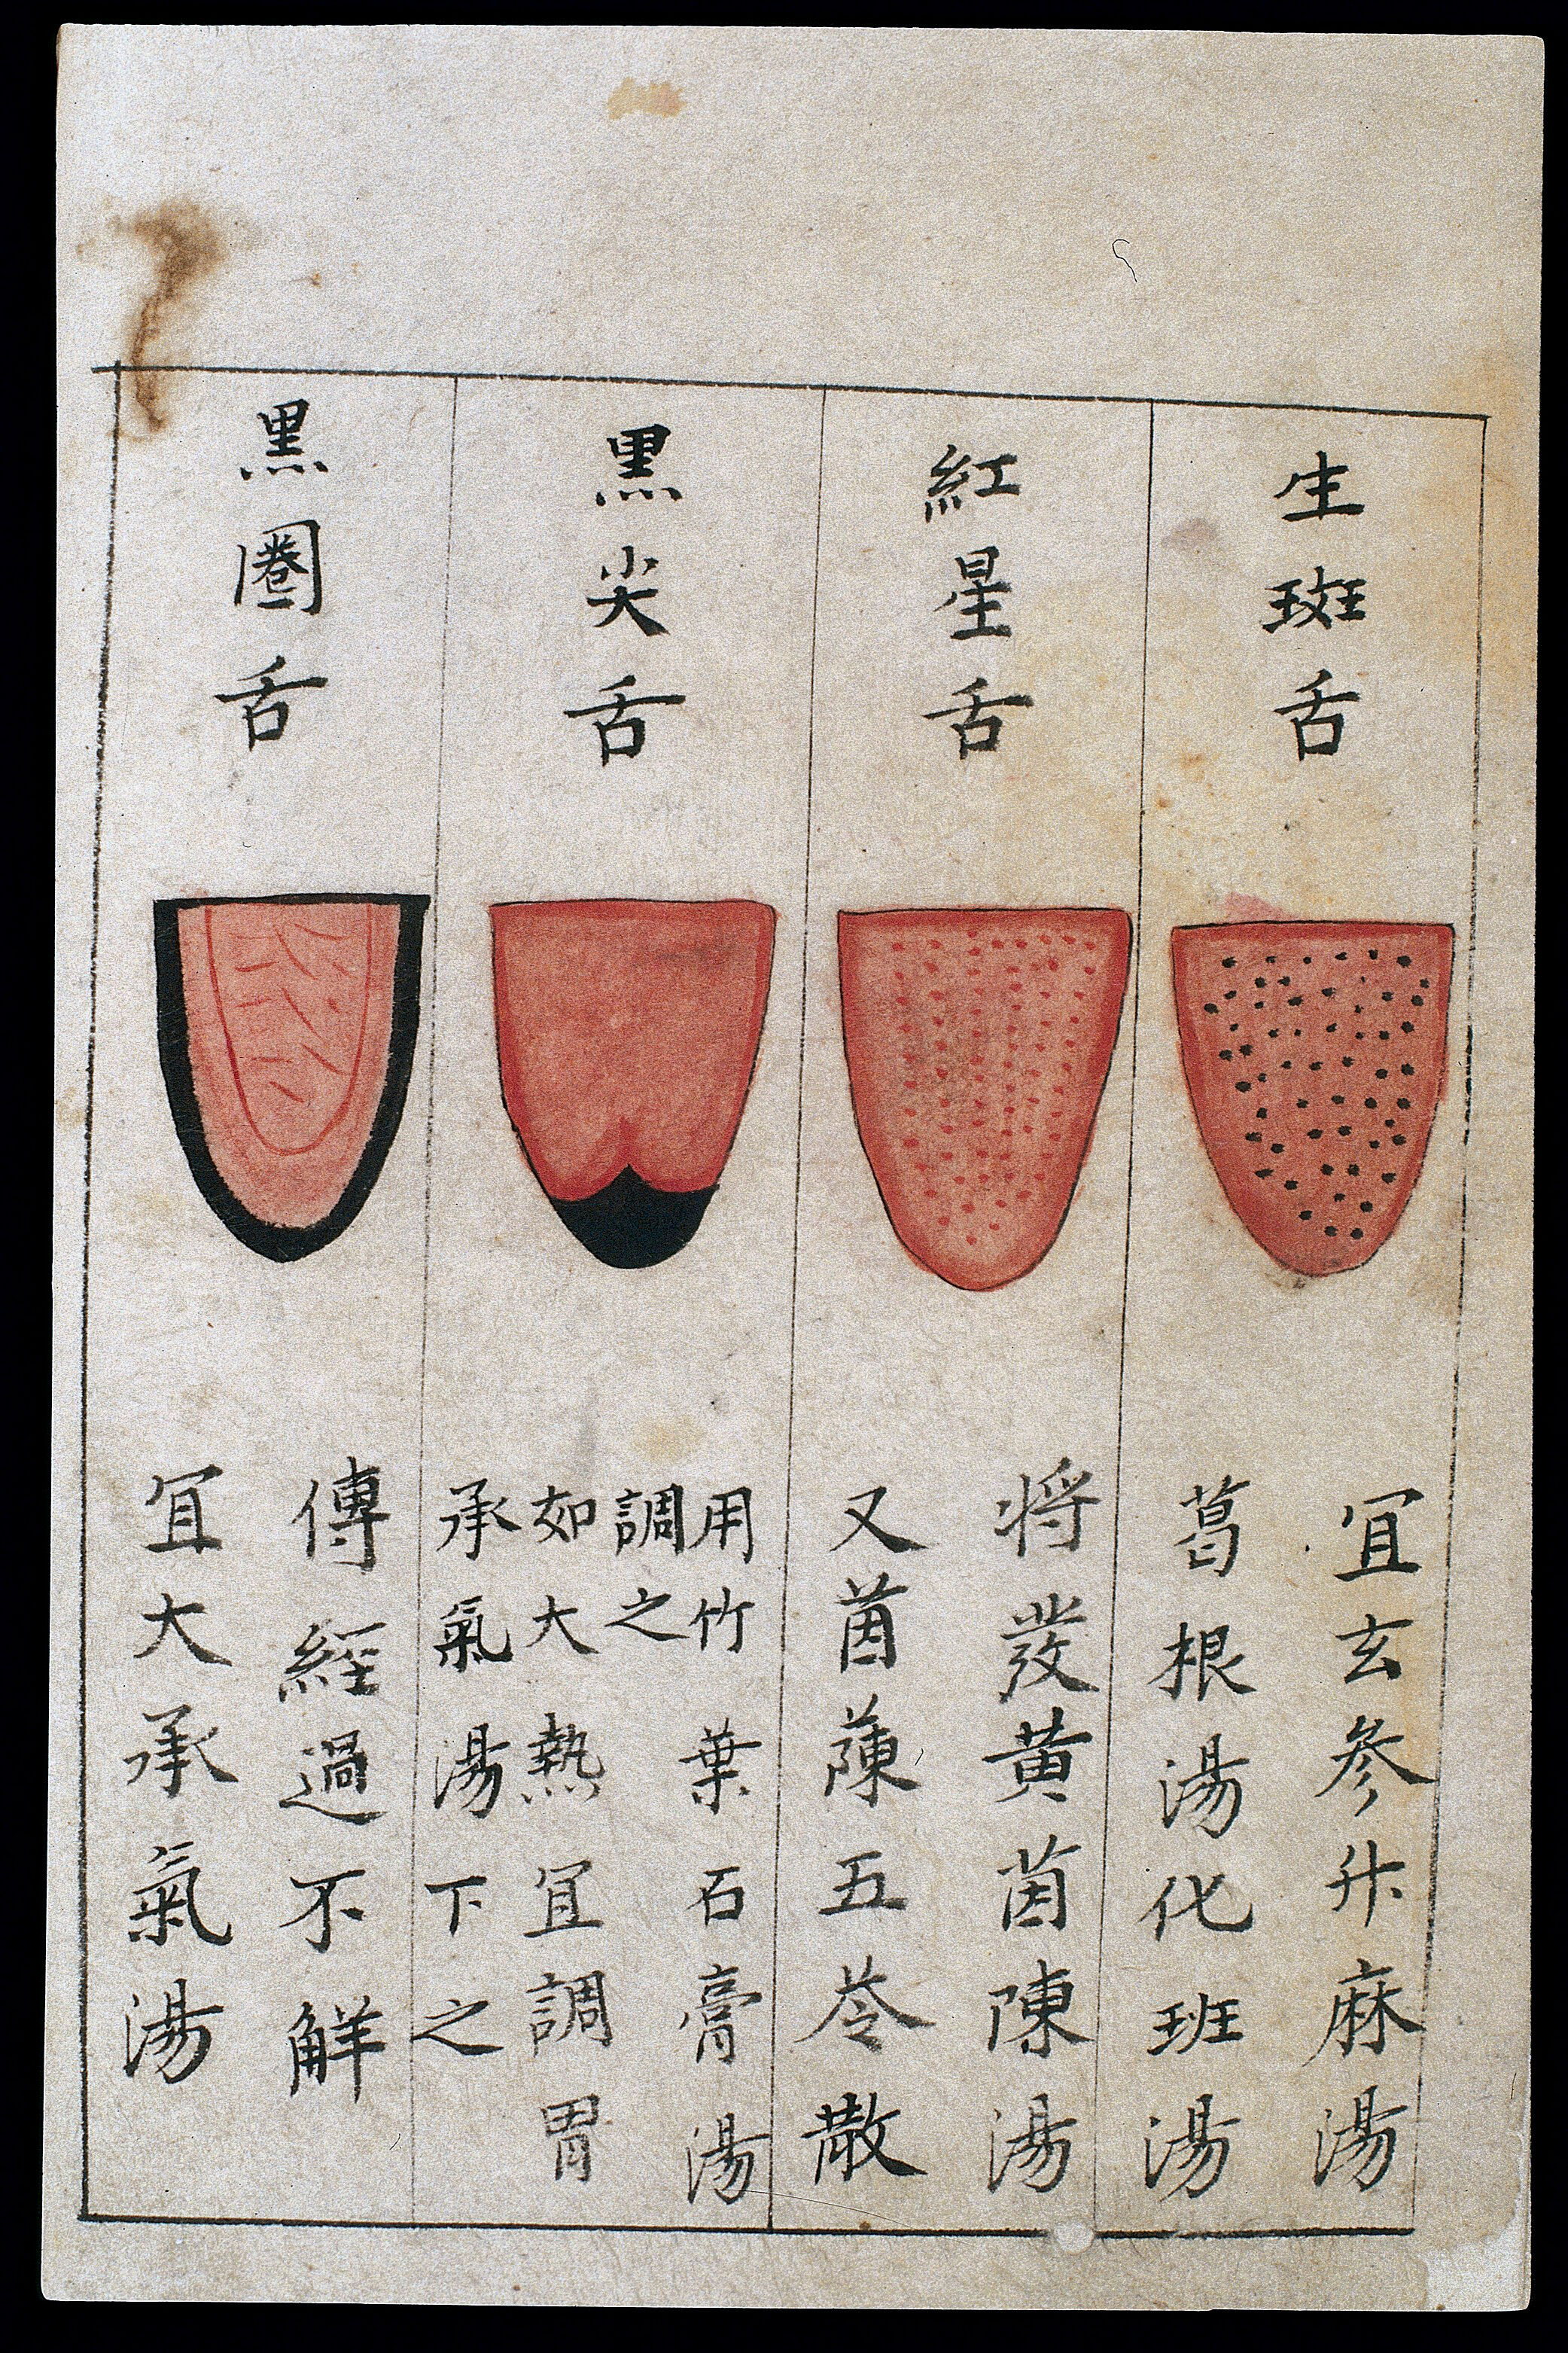 生斑舌
宜玄參升麻湯
葛根湯化班湯
紅星舌
将發黃茵陳湯
又茵蔯五苓散
黑尖舌
用竹葉石膏湯
調之
如大熱宜調胃
承氣湯下之
黑圈舌
傳經過不解
宜大承氣湯